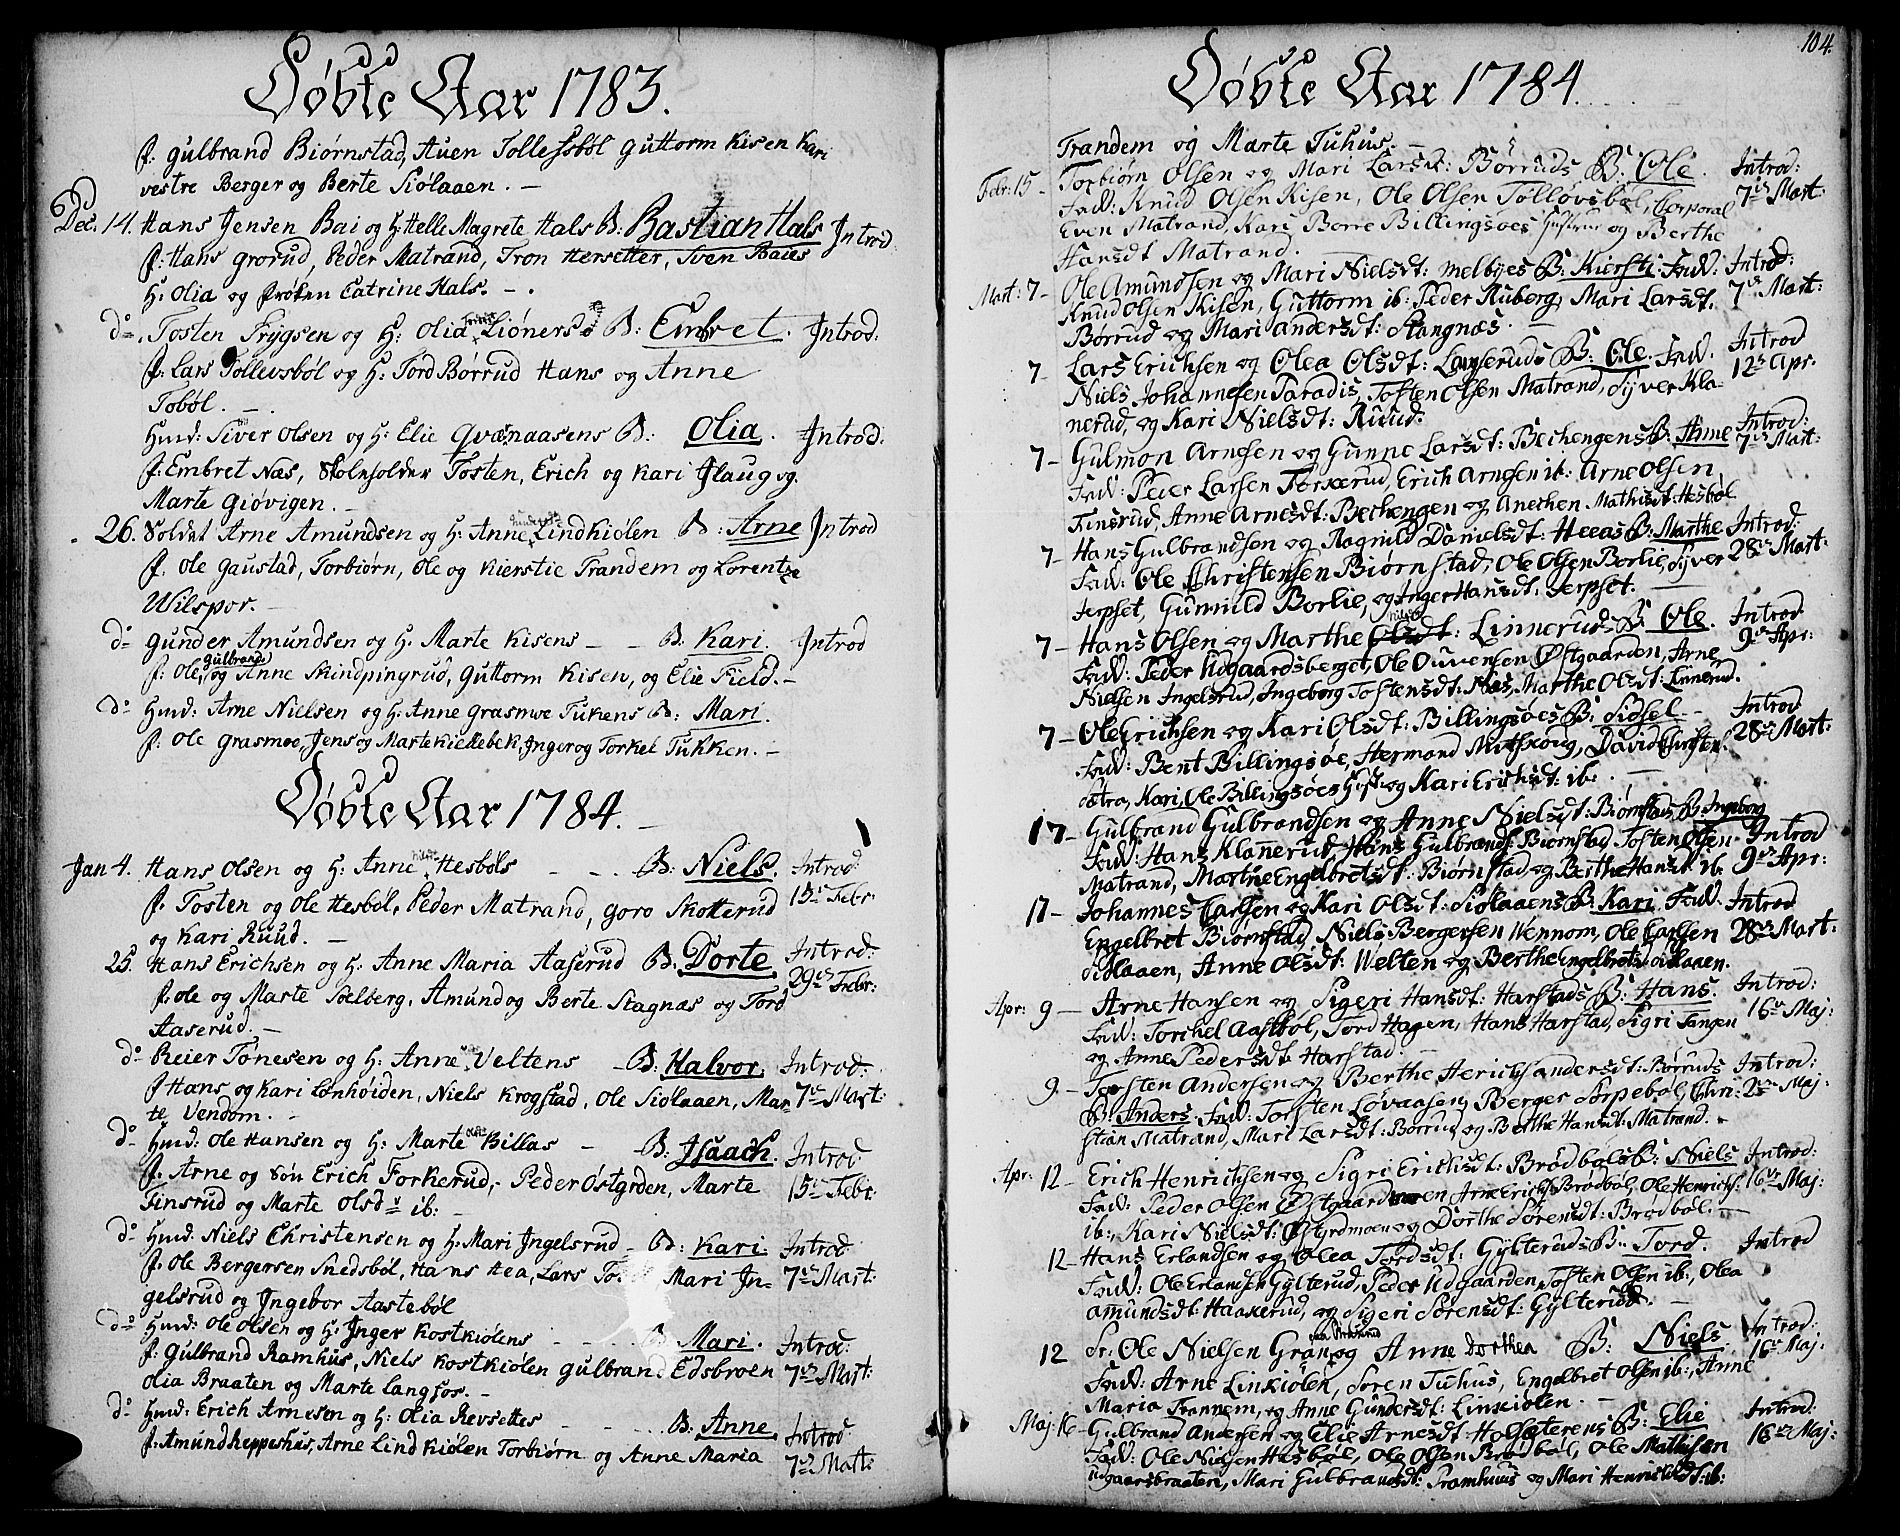 Døbte Aar 1783.
F: Gulbrand Biørnstad, Auen Tollefsbøl Guttorm Kisen Kari
vestre Berger og Berte Siølaaen. —
Dec. 14. Hans Jensen Bai og H: Helle Magrete Hals B: Bastian Hals Introd
F: Hans Grorud, Peder Matrand, Tron Hersetter, Sven Baies
H: Olia og Frøken Catrine Hals. —.
do Tosten Trygsen og H: Olia Liøners B: Embret. Introd:
F: Lars Tollevsbøl og H: Tord Børrud Hans og Anne
Tobøl. —.
Hmd: Siver Olsen og H: Elie Qvænaasens B: Olia. Introd:
F: Embret Næs, Skoleholder Tosten, Erich og Kari Flaug og
Marte Giøvigen. —
26. Soldat Arne Amundsen og H: Anne Lindkiølen B: Arne Introd
F: Ole Gaustad, Torbiørn, Ole og Kierstie Trandem og Lorentze
Wilspor. —
do Gunder Amundsen og H. Marte Kisens — — B: Kari. Introd
F: Ole, Gulbrand og Anne Skindpingrud, Guttorm Kisen, og Elie Field. —
do Hmd: Arne Nielsen og H: Anne Grasmoe Tukens B: Mari.
F: Ole Grasmoe, Jens og Marte Kiellebek, Inger og Torkel Tukken. —
Døbte Aar 1784. —
Jan 4. Hans Olsen og H: Anne Hesbøls — B: Niels. Introd:
F: Tosten og Ole Hesbøl, Peder Matrand, Goro Skotterud 15de Febr:
og Kari Ruud. —
25. Hans Erichsen og H: Anne Maria Aaserud B: Dorte. Introd:
F: Ole og Marte Soelberg, Amund og Berte Stagnæs og Tord 29de Febr:
Aaserud. —
do Reier Tønesen og H: Anne Veltens — B: Halvor. Introd:
F Hans og Kari Lønhøiden, Niels Krogstad, Ole Siølaaen, Mar 7de Mart:
te Vendom. —
do Hmd: Ole Hansen og H: Marte Billas — B: Isaach. Introd
F. Arne og Søn Erich Forkerud, Peder Østgrden, Marte 15de Febr:
Finsrud og Marte Olsd ib: —
do Hmd: Niels Christensen og H: Mari Ingelsrud — B: Kari. Introd
F. Ole Bergersen Snedsbøl, Hans Hea, Lars Mari In= 7de Mart:
gelsrud og Ingebor Aastebøl
do Hmd: Ole Olsen og H: Inger Kostkiølens — B: Mari. Introd:
F: Gulbrand Ramhus, Niels Kostkiølen Gulbrand Edsbroen 7de Mart:
Olia Braaten og Marte Langfos. —
do Hmd: Erich Arnesen og H: Olia Revsettes — B: Anne Introd
F: Amund Kepperhus, Arne Lindkiølen Torbiørn og Anne Maria 7de Mart:
104.
Døbte Aar 1784.
Trandem og Marte Tuhus. —
Febr: 15 — Torbiørn Olsen og Mari Larsdt: Børruds B: Ole. Introd:
Fad: Knud Olsen Kisen, Ole Olsen Tollovsbøl, Corporal 7de Mart:
Even Matrand, Kari Borre Billingsøes Hustrue og Berthe
Hansdt Matrand.
Mart: 7 — Ole Amundsen og Mari Nielsdt: Melbyes B: Kiersti. Fad: Introd:
Knud Olsen Kisen, Guttorm ib: Peder Ruberg, Mari Larsdt. 7de Mart:
Børrud og Mari Andersdt: Stangnæs. —
7 — Lars Erichsen og Olea Olsdt: Langeruds B: Ole. Fad. Introd
Niels Johannesen Paradis, Tosten Olsen Matrand, Syver Kla= 12de Apr.
nerud, og Kari Nielsdt: Ruud.
7 — Gulmon Arnesen og Gunne Larsdt: Bechengens B: Anne Introd:
Fad: Peder Larsen Forkerud, Erich Arnesen ib: Arne Olsen 7de Mart:
Finsrud, Anne Arnesdt: Bechengen og Anethen Mathisdt: Hesbøl
7 — Hans Gulbrandsen og Ragnild Danielsdt: Heeas B: Marthe Introd:
Fad: Ole Christensen Biørnstad, Ole Olsen Borlie, Syver 28de Mart:
Jerpset, Gunnild Borlie, og Inger Hansdt: Jerpset. —
7 — Hans Olsen og Marthe Olsdt: Linneruds B: Ole. Introd
Fad: Peder Udgaardsberget, Ole Ouvensen Østgaarden, Arne 9de Apr:
Nielsen Ingelsrud, Ingeborg Tostensdt: Næs, Marthe Olsdt: Linnerud.
7 — Ole Erichsen og Kari Olsdt: Billingsøes B: Sidsel — Introd
Fad: Bent Billingsøe, Hermand Mitskoug, David Christens 28de Mart:
Sætra, Kari, Ole Billingsøes Hust. og Kari Erichsdt: ib: —
17 — Gulbrand Gulbrandsen og Anne Nielsdt: Biørnstads B: Ingeborg
Fad: Hans Klannerud, Hans Gulbrands: Biørnstad, Tosten Olsen Introd
Matrand, Marthe Engelbretsdt: Biørnstad, og Berthe Hansdt ib. 9de Apr:
17 — Johannes Carlsen og Kari Olsdt: Siølaaens B: Kari. Fad. Introd
Engelbret Biørnstad, Niels Bergersen Wennom, Ole Carlsen 28de Mart:
Siølaaen, Anne Olsdt: Welten og Berthe Engelbretsd: Siølaaen.
Apr: 9 — Arne Hansen og Sigeri Hansdt: Harstads B: Hans. Introd:
Fad: Torchel Aastbøl, Tord Hagen, Hans Harstad, Sigri Tangen 16de Maj:
og Anne Pedersdt: Harstad. —
9 — Torsten Andersen og Berthe Herichsandersdt: Børruds Introd:
B: Anders. Fad: Torsten Løvaasen, Berger Sorpebøl, Chri= 2den Maj:
stian Matrand, Mari Larsdt: Børrud og Berthe Hansdt: Matrand. —
Apr: 12 — Erich Henrichsen og Sigri Erichsdt: Brødbøls B: Niels Introd:
Fad: Peder Olsen Østgaarden Arne Erichs: Brødbøl, Ole Henrichs: 16de Maj:
ib:, Kari Nielsdt: Østgrdmoen og Dorthe Sørensdt: Brødbøl. —
12 — Hans Erlandsen og Olea Tordsdt: Gylteruds B: Tord. Introd
Fad: Ole Erlandsen Gylterud, Peder Udgaarden, Tosten Olsen ib:, Olea
Amundsdt: Haakerud, og Sigeri Sørensdt: Gylterud. —
12 Sr: Ole Nielsen Gran og Anne Dorthea B: Niels. Introd:
Fad: Arne Linkiølen, Søren Tuhus, Engelbret Olsen ib:, Anne 16de Maj:
Maria Trannem, og Anne Gundersdt: Linkiølen. —
Maj: 16 — Gulbrand Andersen og Elie Arnesdt Holsæterens B: Elie Introd:
Fad: Ole Nielsen Hesbøl, Ole Olsen Brødbøl, Ole Mathisen 16de Maj:
Udgaarsbraaten, Mari Gulbrandsdt: Tramhuus og Mari Henrichsdt: ib: